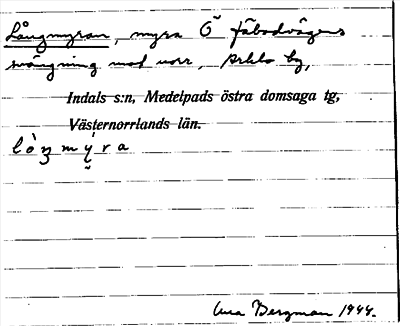 Långmyran, myra Ö fäbodvägens
svängning mot norr,      by,
Indals s:n, Medelpads östra domsaga tg,
Västernorrlands län.
Bergman 1944.